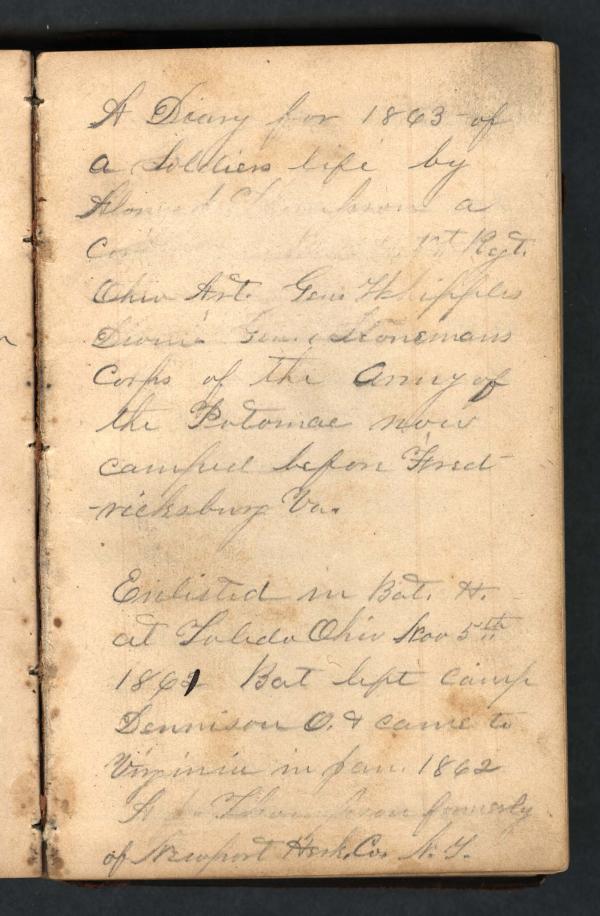 A Diary for 1863 of
a Soldiers life by
a
1st Regt.
Ohio Art. Gen. Whipples
Gen. Stonemans
Corps of the Army of
the Potomac now
camped before Fred-
-ricksburg Va.
Enlisted in Bat. H.
at Toledo Ohio Nov 5th
1861 Bat left camp
Dennison O. & came to
Virginia in Jan. 1862
Thompson formerly
of Newport Herk. Co. N. Y.